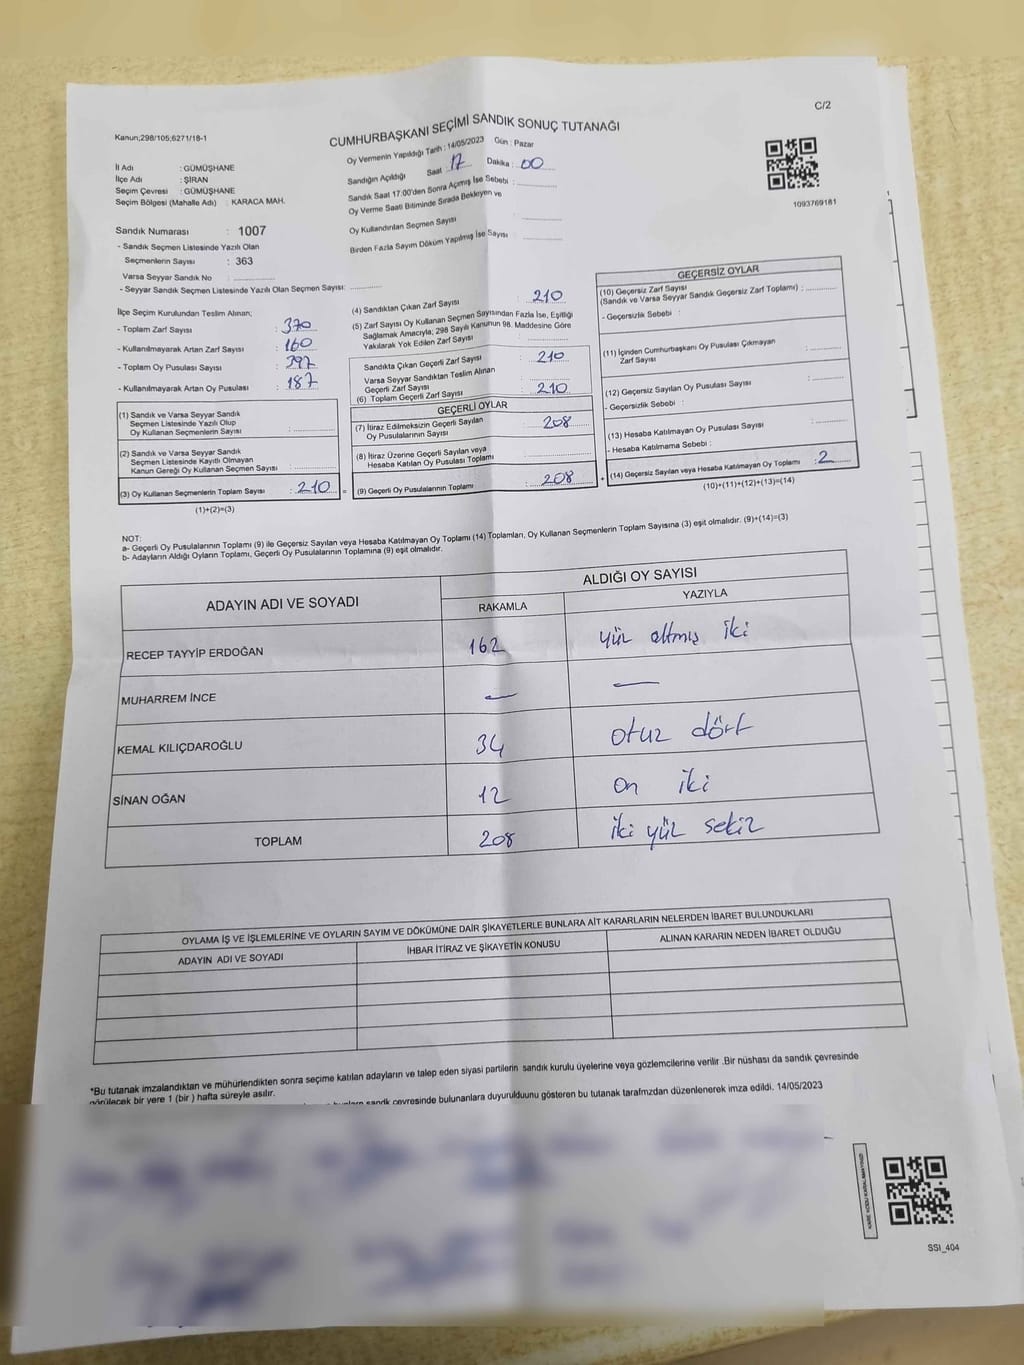 C/2
Kanun;298/105;6271/18-1
CUMHURBAŞKANI SEÇİMİ SANDIK SONUÇ TUTANAĞI
Oy Vermenin Yapıldığı Tarih : 14/05/2023 Gün : Pazar
Sandığın Açıldığı Saat : 17 Dakika : 00
Sandık Saat 17:00'den Sonra Açımış İse Sebebi :
Oy Verme Saati Bitiminde Sırada Bekleyen ve
Oy Kullandırılan Seçmen Sayısı :
Birden Fazla Sayım Döküm Yapılmış İse Sayısı :
1093769181
İl Adı : GÜMÜŞHANE
İlçe Adı : ŞİRAN
Seçim Çevresi : GÜMÜŞHANE
Seçim Bölgesi (Mahalle Adı) : KARACA MAH.
Sandık Numarası : 1007
- Sandık Seçmen Listesinde Yazılı Olan
Seçmenlerin Sayısı : 363
Varsa Seyyar Sandık No :
- Seyyar Sandık Seçmen Listesinde Yazılı Olan Seçmen Sayısı:
İlçe Seçim Kurulundan Teslim Alınan;
- Toplam Zarf Sayısı : 370
- Kullanılmayarak Artan Zarf Sayısı : 160
- Toplam Oy Pusulası Sayısı : 397
- Kullanılmayarak Artan Oy Pusulası : 187
(1) Sandık ve Varsa Seyyar Sandık
Seçmen Listesinde Yazılı Olup
Oy Kullanan Seçmenlerin Sayısı :
(2) Sandık ve Varsa Seyyar Sandık
Seçmen Listesinde Kayıtlı Olmayan
Kanun Gereği Oy Kullanan Seçmen Sayısı :
(3) Oy Kullanan Seçmenlerin Toplam Sayısı : 210 =
(1)+(2)=(3)
(4) Sandıktan Çıkan Zarf Sayısı : 210
(5) Zarf Sayısı Oy Kullanan Seçmen Sayısından Fazla İse, Eşitliği
Sağlamak Amacıyla; 298 Sayılı Kanunun 98. Maddesine Göre
Yakılarak Yok Edilen Zarf Sayısı :
Sandıkta Çıkan Geçerli Zarf Sayısı : 210
Varsa Seyyar Sandıktan Teslim Alınan
Geçerli Zarf Sayısı :
(6) Toplam Geçerli Zarf Sayısı : 210
GEÇERLİ OYLAR
(7) İtiraz Edilmeksizin Geçerli Sayılan
Oy Pusulalarının Sayısı : 208
(8) İtiraz Üzerine Geçerli Sayılan veya
Hesaba Katılan Oy Pusulası Toplamı :
(9) Geçerli Oy Pusulalarının Toplamı : 208 +
GEÇERSİZ OYLAR
(10) Geçersiz Zarf Sayısı
(Sandık ve Varsa Seyyar Sandık Geçersiz Zarf Toplamı) :
- Geçersizlik Sebebi :
(11) İçinden Cumhurbaşkanı Oy Pusulası Çıkmayan
Zarf Sayısı :
(12) Geçersiz Sayılan Oy Pusulası Sayısı :
- Geçersizlik Sebebi :
(13) Hesaba Katılmayan Oy Pusulası Sayısı :
- Hesaba Katılmama Sebebi :
(14) Geçersiz Sayılan veya Hesaba Katılmayan Oy Toplamı : 2
(10)+(11)+(12)+(13)=(14)
NOT:
a- Geçerli Oy Pusulalarının Toplamı (9) ile Geçersiz Sayılan veya Hesaba Katılmayan Oy Toplamı (14) Toplamları, Oy Kullanan Seçmenlerin Toplam Sayısına (3) eşit olmalıdır. (9)+(14)=(3)
b- Adayların Aldığı Oyların Toplamı, Geçerli Oy Pusulalarının Toplamına (9) eşit olmalıdır.
ADAYIN ADI VE SOYADI
ALDIĞI OY SAYISI
RAKAMLA YAZIYLA
RECEP TAYYİP ERDOĞAN 162 yüz altmış iki
MUHARREM İNCE — —
KEMAL KILIÇDAROĞLU 34 otuz dört
SİNAN OĞAN 12 on iki
TOPLAM 208 iki yüz sekiz
OYLAMA İŞ VE İŞLEMLERİNE VE OYLARIN SAYIM VE DÖKÜMÜNE DAİR ŞİKAYETLERLE BUNLARA AİT KARARLARIN NELERDEN İBARET BULUNDUKLARI
ADAYIN ADI VE SOYADI İHBAR İTİRAZ VE ŞİKAYETİN KONUSU ALINAN KARARIN NEDEN İBARET OLDUĞU
*Bu tutanak imzalandıktan ve mühürlendikten sonra seçime katılan adayların ve talep eden siyasi partilerin sandık kurulu üyelerine veya gözlemcilerine verilir .Bir nüshası da sandık çevresinde
görülecek bir yere 1 (bir ) hafta süreyle asılır.
sandık çevresinde bulunanlara duyurulduunu gösteren bu tutanak tarafmzdan düzenlenerek imza edildi. 14/05/2023
SSI_404